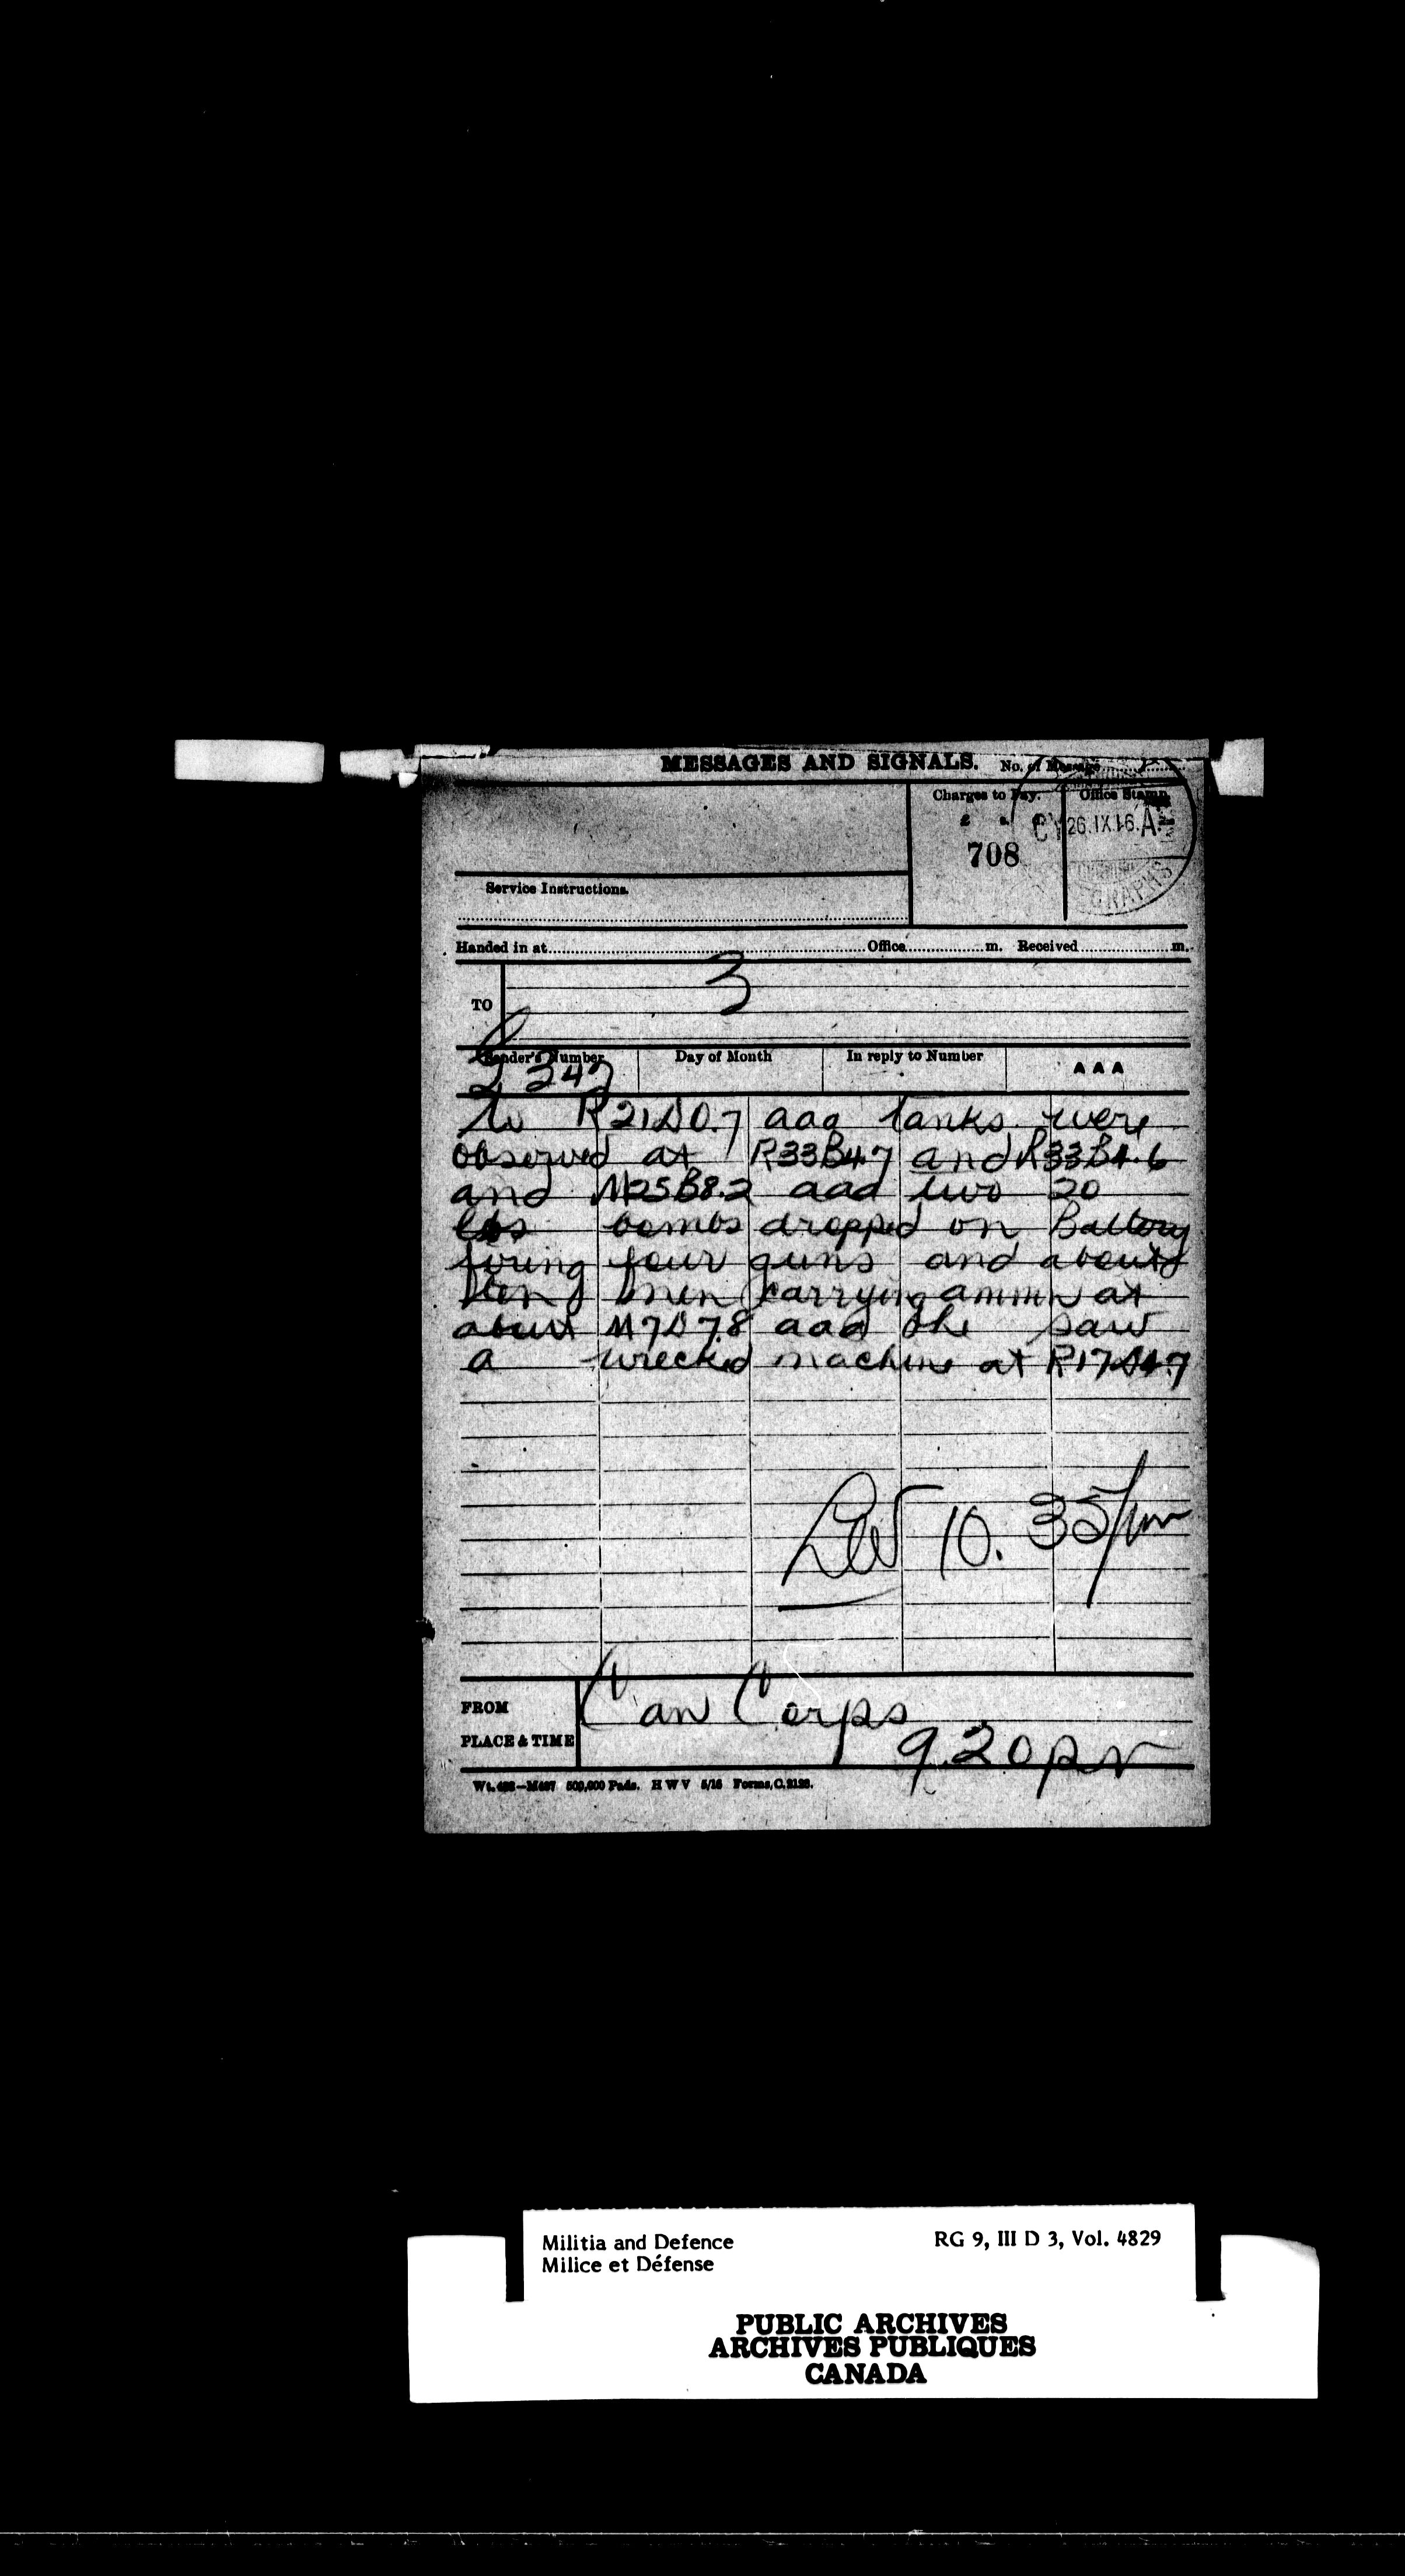 MESSAGES AND SIGNALS. No. of Message
Charges to Pay. Office Stamp.
£ s.
26.IX.16.A
708
GRAPHS
Service Instructions.
Handed in at Office m. Received m.
3
TO
Sender's Number Day of Month In reply to Number AAA
G 247
to R21D0.7 aaa Tanks were
observed at R33B4.7 and R33B1.6
and M25B8.2 aaa two 20
lbs bombs dropped on Battery
firing four guns and about
ten men carrying ammn at
about M7D7.8 aaa Obs saw
a wrecked machine at R17D4.7
10.35pm
FROM Can Corps
PLACE & TIME 9.20pm
500,000 Pads. H W V 5/16 Forms, C.2123.
Militia and Defence RG 9, III D 3, Vol. 4829
Milice et Défense
PUBLIC ARCHIVES
ARCHIVES PUBLIQUES
CANADA